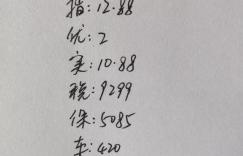 指:12.88
优:2
实:10.88
税:9299
保:5085
车:420